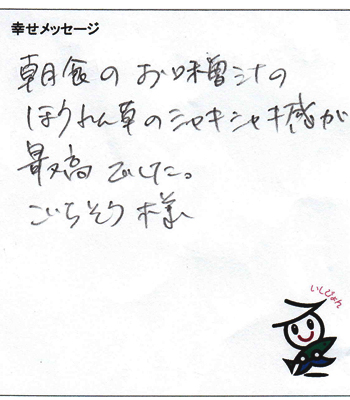 幸せメッセージ
朝食のお味噌汁の
ほうれん草のシャキシャキ感が
最高でした。
ごちそう様
いしぴょん